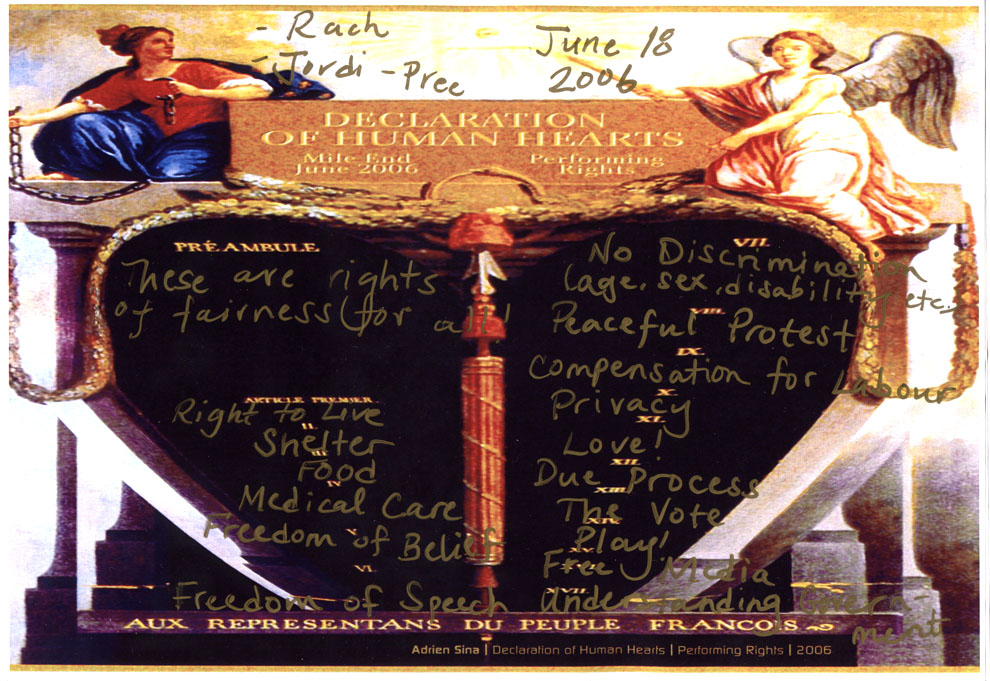 - Rach
- Jordi - Pree
June 18
2006
DECLARATION
OF HUMAN HEARTS
Mile End
June 2006
Performing
Rights
PRÉAMBULE
These are rights
of fairness (for all!
ARTICLE PREMIER
Right to Live
II.
Shelter
III
Food
IV
Medical Care
V
Freedom of Belief
VI.
Freedom of Speech
VII.
No Discrimination
(age, sex, disability, etc.)
VIII.
Peaceful Protest
IX.
Compensation for Labour
X.
Privacy
XI.
Love!
XII.
Due Process
XIII.
The Vote
XIV.
Play!
XV.
Free Media
XVII.
Understanding Government
AUX REPRESENTANS DU PEUPLE FRANCOIS
Adrien Sina | Declaration of Human Hearts | Performing Rights | 2006